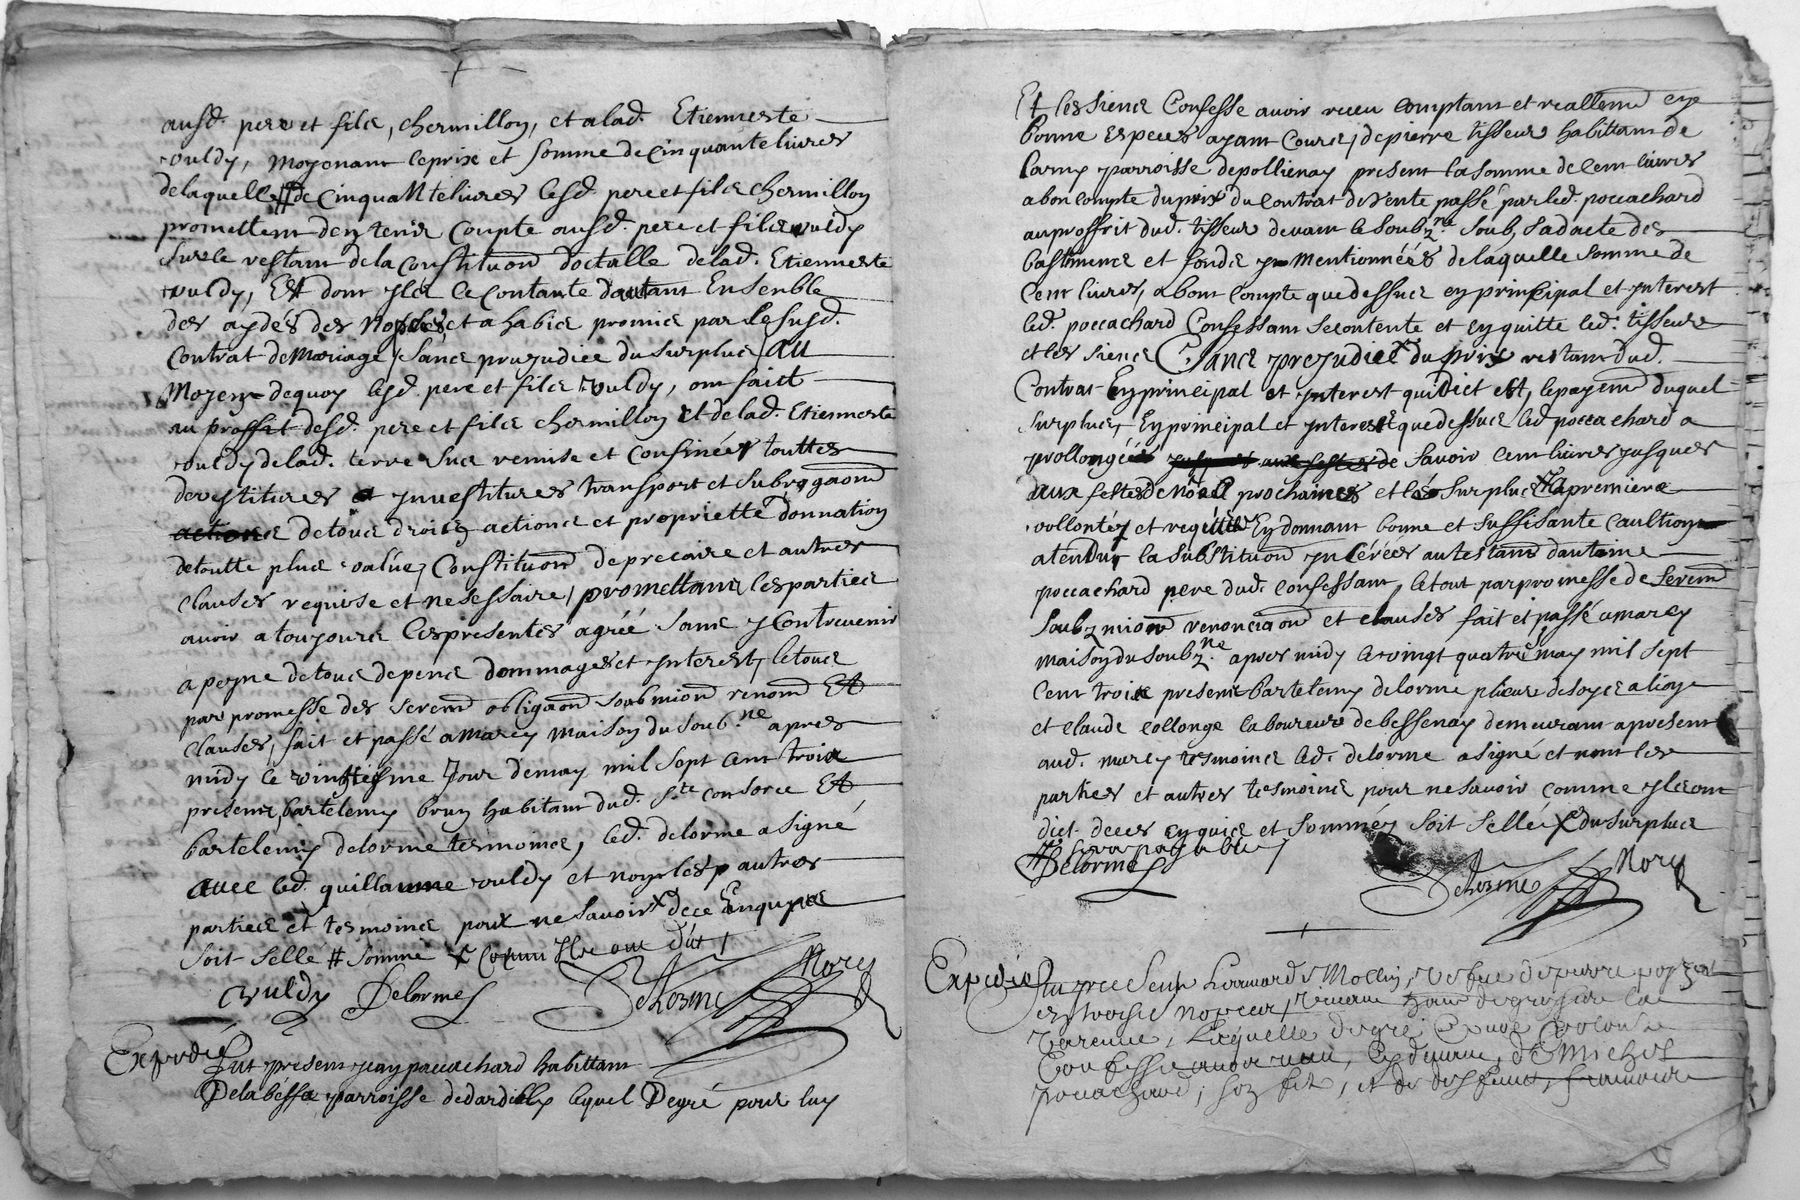 ausd. pere et fils, chermillon, et alad. Etiennette
vuldy, moyenant leprix et somme decinquante livres
delaquelle # de cinquante livres lesd. pere et fils chermillon
promettent den tenir compte ausd. pere et fils vuldy
surle restant dela constituon doctalle delad. Etiennette
vuldy, Et dont yls se contante dautant Ensemble
des aydes des nopces et a habis promis par le susd.
contrat de mariage, sans prejudice du surplus, au
moyen dequoy lesd. pere et fils vuldy, ont faict
au proffit desd. pere et fils chermillon et delad. Etiennette
vuldy delad. terre sus remise et confinée, touttes
devestitures et ynvestitures transport et subrogaon
de tous droits actions et proprietté donnation
detoutte plus value, constituon deprecaire et autres
clauses requise et nesessaire, promettans les parties
avoir atousjours les presentes agréé sans y contrevenir
a peyne detous depens dommages et ynterest, letout
par promesse des serem obligaon soubmion renonon Et
clauses, fait et passé amarcy maison du soub.ne apres
midy le vingtiesme Jour demay mil sept cent trois
presents bartelemy brun habitant dud. Ste consorce Et
bartelemy delorme tesmoins, led. delorme a signé
avec led. guillaume vuldy et non les autres
parties et tesmoins pour ne savoir X dece Enquis
soit sellé # sommé X comme ylz ont dit /
vuldy Delorme Delorme Nore
Expedié
Fut present jean pocachard habittant
Delabesse parroisse dedardilly lequel Degré pour luy
Et les siens Confesse avoir receu comptant et reallemt en
bonne Especes ayant cours, depierre tisseur habittant de
Larny parroisse depollienay present la somme de cent livres
a bon compte du prix du contrat de Vente passé par led. pocachard
au proffit dud. tisseur devant le soubz.ne soubz sa dacte des
bastiments et fonds y mentionnéés delaquelle somme de
cent livres, a bont compte que dessus en principal et ynterest
led. pocachard Confessant se contente et en quitte led. tisseur
et les siens sans prejudice du prix restant dud.
Contrat En principal et ynterest qui dict est, lepayemt duquel
surplus, En principal et ynterest que dessus led pocachard a
prollongéé de savoir cent livres jusques
aux festes de Noel prochaines et le surplus a premiere
vollonté, et requitte En donnant bonne et suffisante caultion
atendu la substituon ynserée au testamt dantoine
pocachard pere dud. confessant, letout par promesse de serem
soubzmion renonciaon et clauses fait et passé amarcy
maison du soubz.ne apres midy le vingt quatre may mil sept
cent trois presens bartelemy delorme plieur de soye a lion
et claude collonge laboureur de bessenay demeurant apresent
aud. marcy tesmoins led. delorme a signé et nont les
parties et autres tesmoins pour ne savoir comme yls ont
dict deces enquis et sommés soit sellé X du surplus
sera payable /
Delorme Delorme Nore
Expedié
Fut present
Confesse avoir receu, de Michel
pocachard, son fils, et de